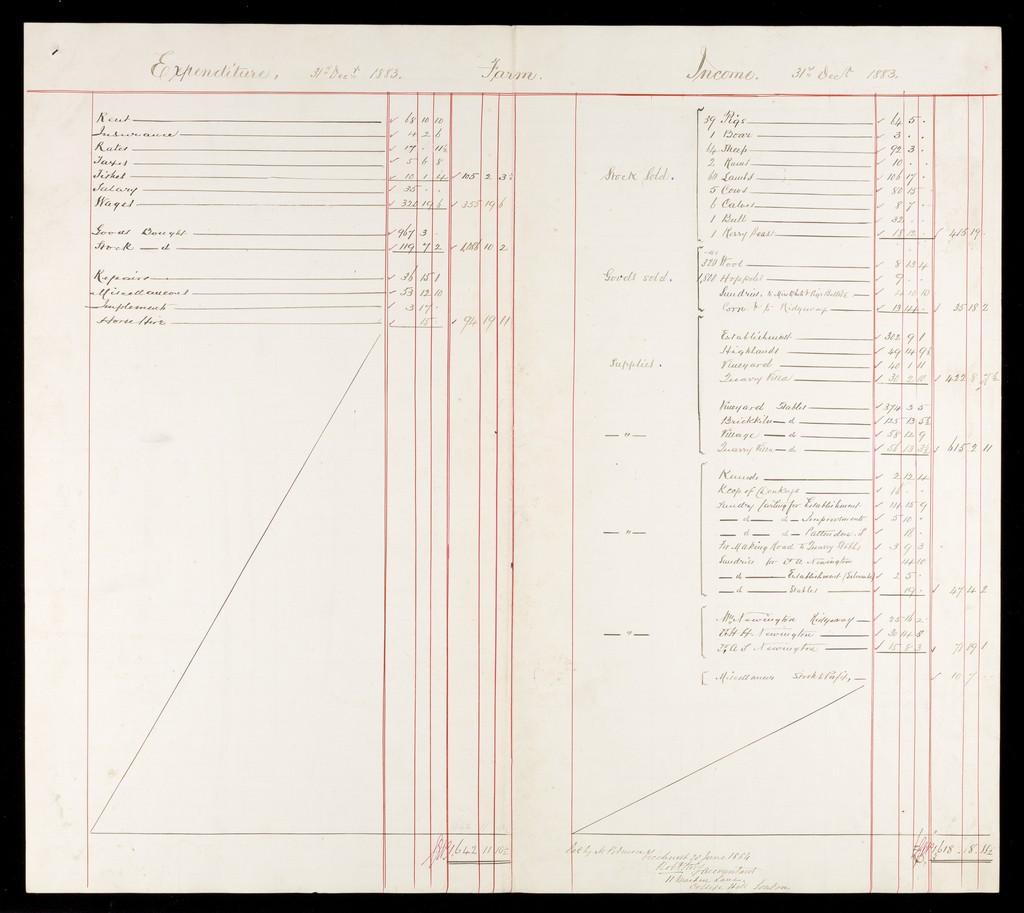 Expenditure. 31st Decr 1883. Farm.
Rent 68 10 10
Insurance 4 2 6
Rates 17 · 11½
Taxes 5 6 8
Tithes 10 1 4 105 2 3½
Salary 35 · ·
Wages 320 19 6 355 19 6
Goods Bought 967 3 ·
Stock — d 119 7 2 1,086 10 2
Repairs 36 15 1
Miscellaneous 53 12 10
Implements 3 17 ·
Horse Hire 15 · 94 19 11
1,642 11 10½
Income. 31st Decr 1883.
Stock Sold.
39 Pigs 64 5 ·
1 Boar 3 · ·
64 Sheep 92 3 ·
2 Rams 10 · ·
60 Lambs 106 17 ·
5 Cows 80 15 ·
6 Calves 8 7 ·
1 Bull 32 · ·
1 Kerry 18 12 · 415 19 ·
Goods sold.
320 Wool 8 13 4
1,800 Hoppoles 9 · ·
Sundries, to 4 10 10
Corn & to Ridgeway 13 14 · 35 18 2
Supplies.
Establishment 302 9 1
Highlands 49 14 9½
Vineyard 40 1 11
Quarry Villa 30 2 10 422 8 7½
— " —
Vineyard Stables 374 3 5
Brickkiln — d 125 13 5½
Village — d 58 12 9
Quarry Villa — d 56 13 3½ 615 2 11
— " —
Kennels 2 12 4
Keep of Donkeys 16 · ·
Sundry Carting for Establishment 14 15 9
— d — d — Improvements 5 10 ·
— d — d — 18 ·
For Making Road to Quarry Stables 3 9 3
Sundries for A Newington 14 10
— d — Establishment 2 5 ·
— d — Stables 19 · 47 4 2
— " —
Mrs Newington Ridgeway 25 16 2
H H Newington 30 14 8
A S Newington 15 8 3 71 19 1
Miscellaneous Stock & Profit, 10 7 ·
1,618 18 11½
Ticehurst 20 June 1884
Accountant
11 Maiden Lane,
College Hill London